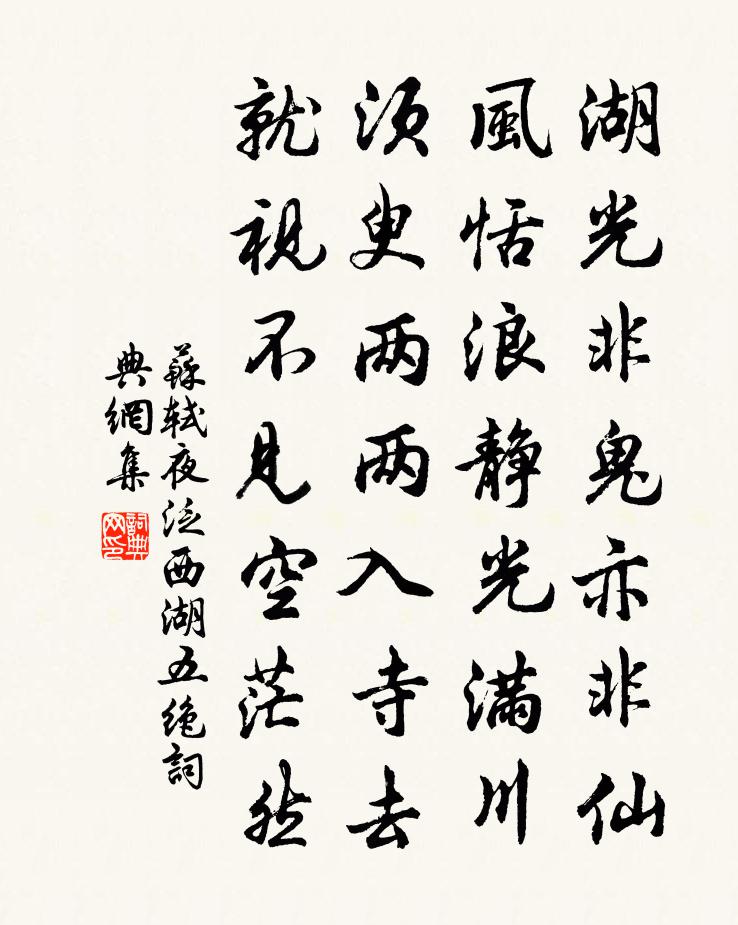 湖光非鬼亦非仙
風恬浪静光滿川
須臾两两入寺去
就視不見空茫然
蘇軾夜泛西湖五绝詞
典網集
詞典
网印